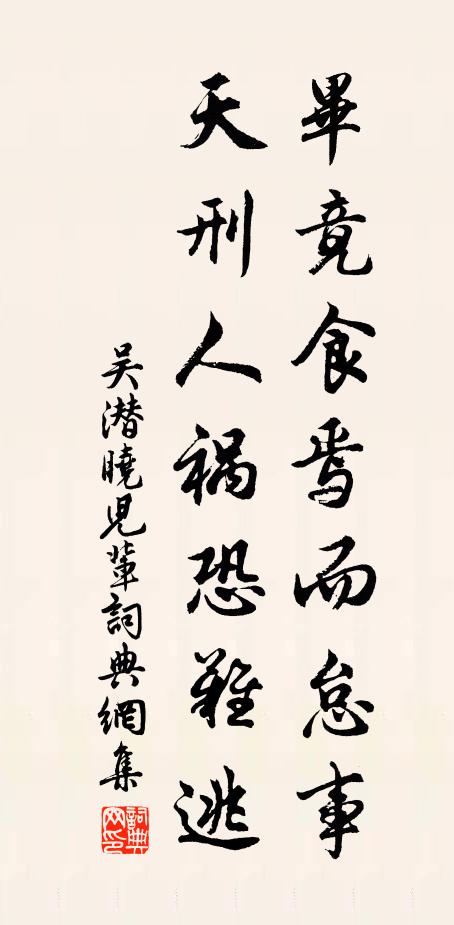 畢竟食焉而怠事
天刑人禍恐難逃
吳潜曉兒輩詞典網集
詞典網印